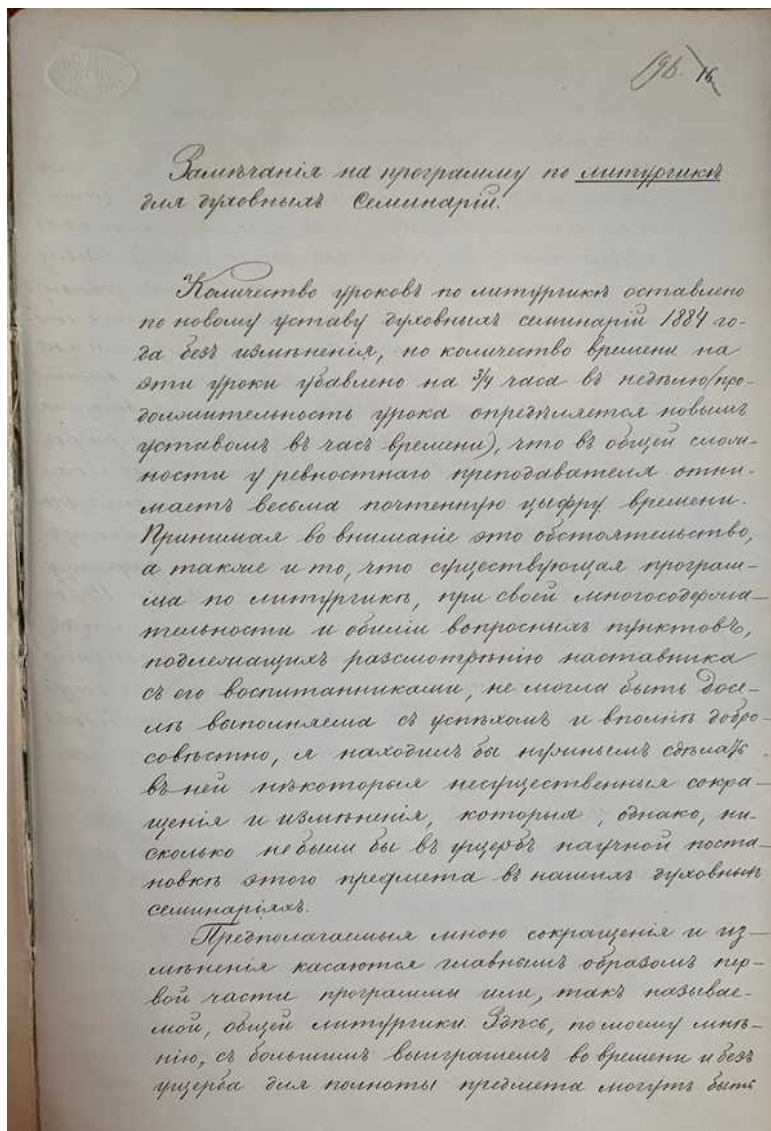 196. 16
Замѣчанія на программу по литургикѣ
для духовныхъ Семинарій.
Количество уроковъ по литургикѣ оставлено
по новому уставу духовныхъ семинарій 1884 го-
да безъ измѣненія, но количество времени на
эти уроки убавлено на 3/4 часа въ недѣлю (про-
должительность урока опредѣляется новымъ
уставомъ въ часъ времени), что въ общей слож-
ности у ревностнаго преподавателя отни-
маетъ весьма почтенную цыфру времени.
Принимая во вниманіе это обстоятельство,
а также и то, что существующая програм-
ма по литургикѣ, при своей многосодержа-
тельности и обиліи вопросныхъ пунктовъ,
подлежащихъ разсмотрѣнію наставника
съ его воспитанниками, не могла быть досе-
лѣ выполняема съ успѣхомъ и вполнѣ добро-
совѣстно, я находилъ бы нужнымъ сдѣлать
въ ней нѣкоторыя несущественныя сокра-
щенія и измѣненія, которыя, однако, ни-
сколько не были бы въ ущербъ научной поста-
новкѣ этого предмета въ нашихъ духовныхъ
семинаріяхъ.
Предполагаемыя мною сокращенія и из-
мѣненія касаются главнымъ образомъ пер-
вой части программы или, такъ называе-
мой, общей литургики. Здѣсь, по моему мнѣ-
нію, съ большимъ выигрышемъ во времени и безъ
ущерба для полноты предмета могутъ быть